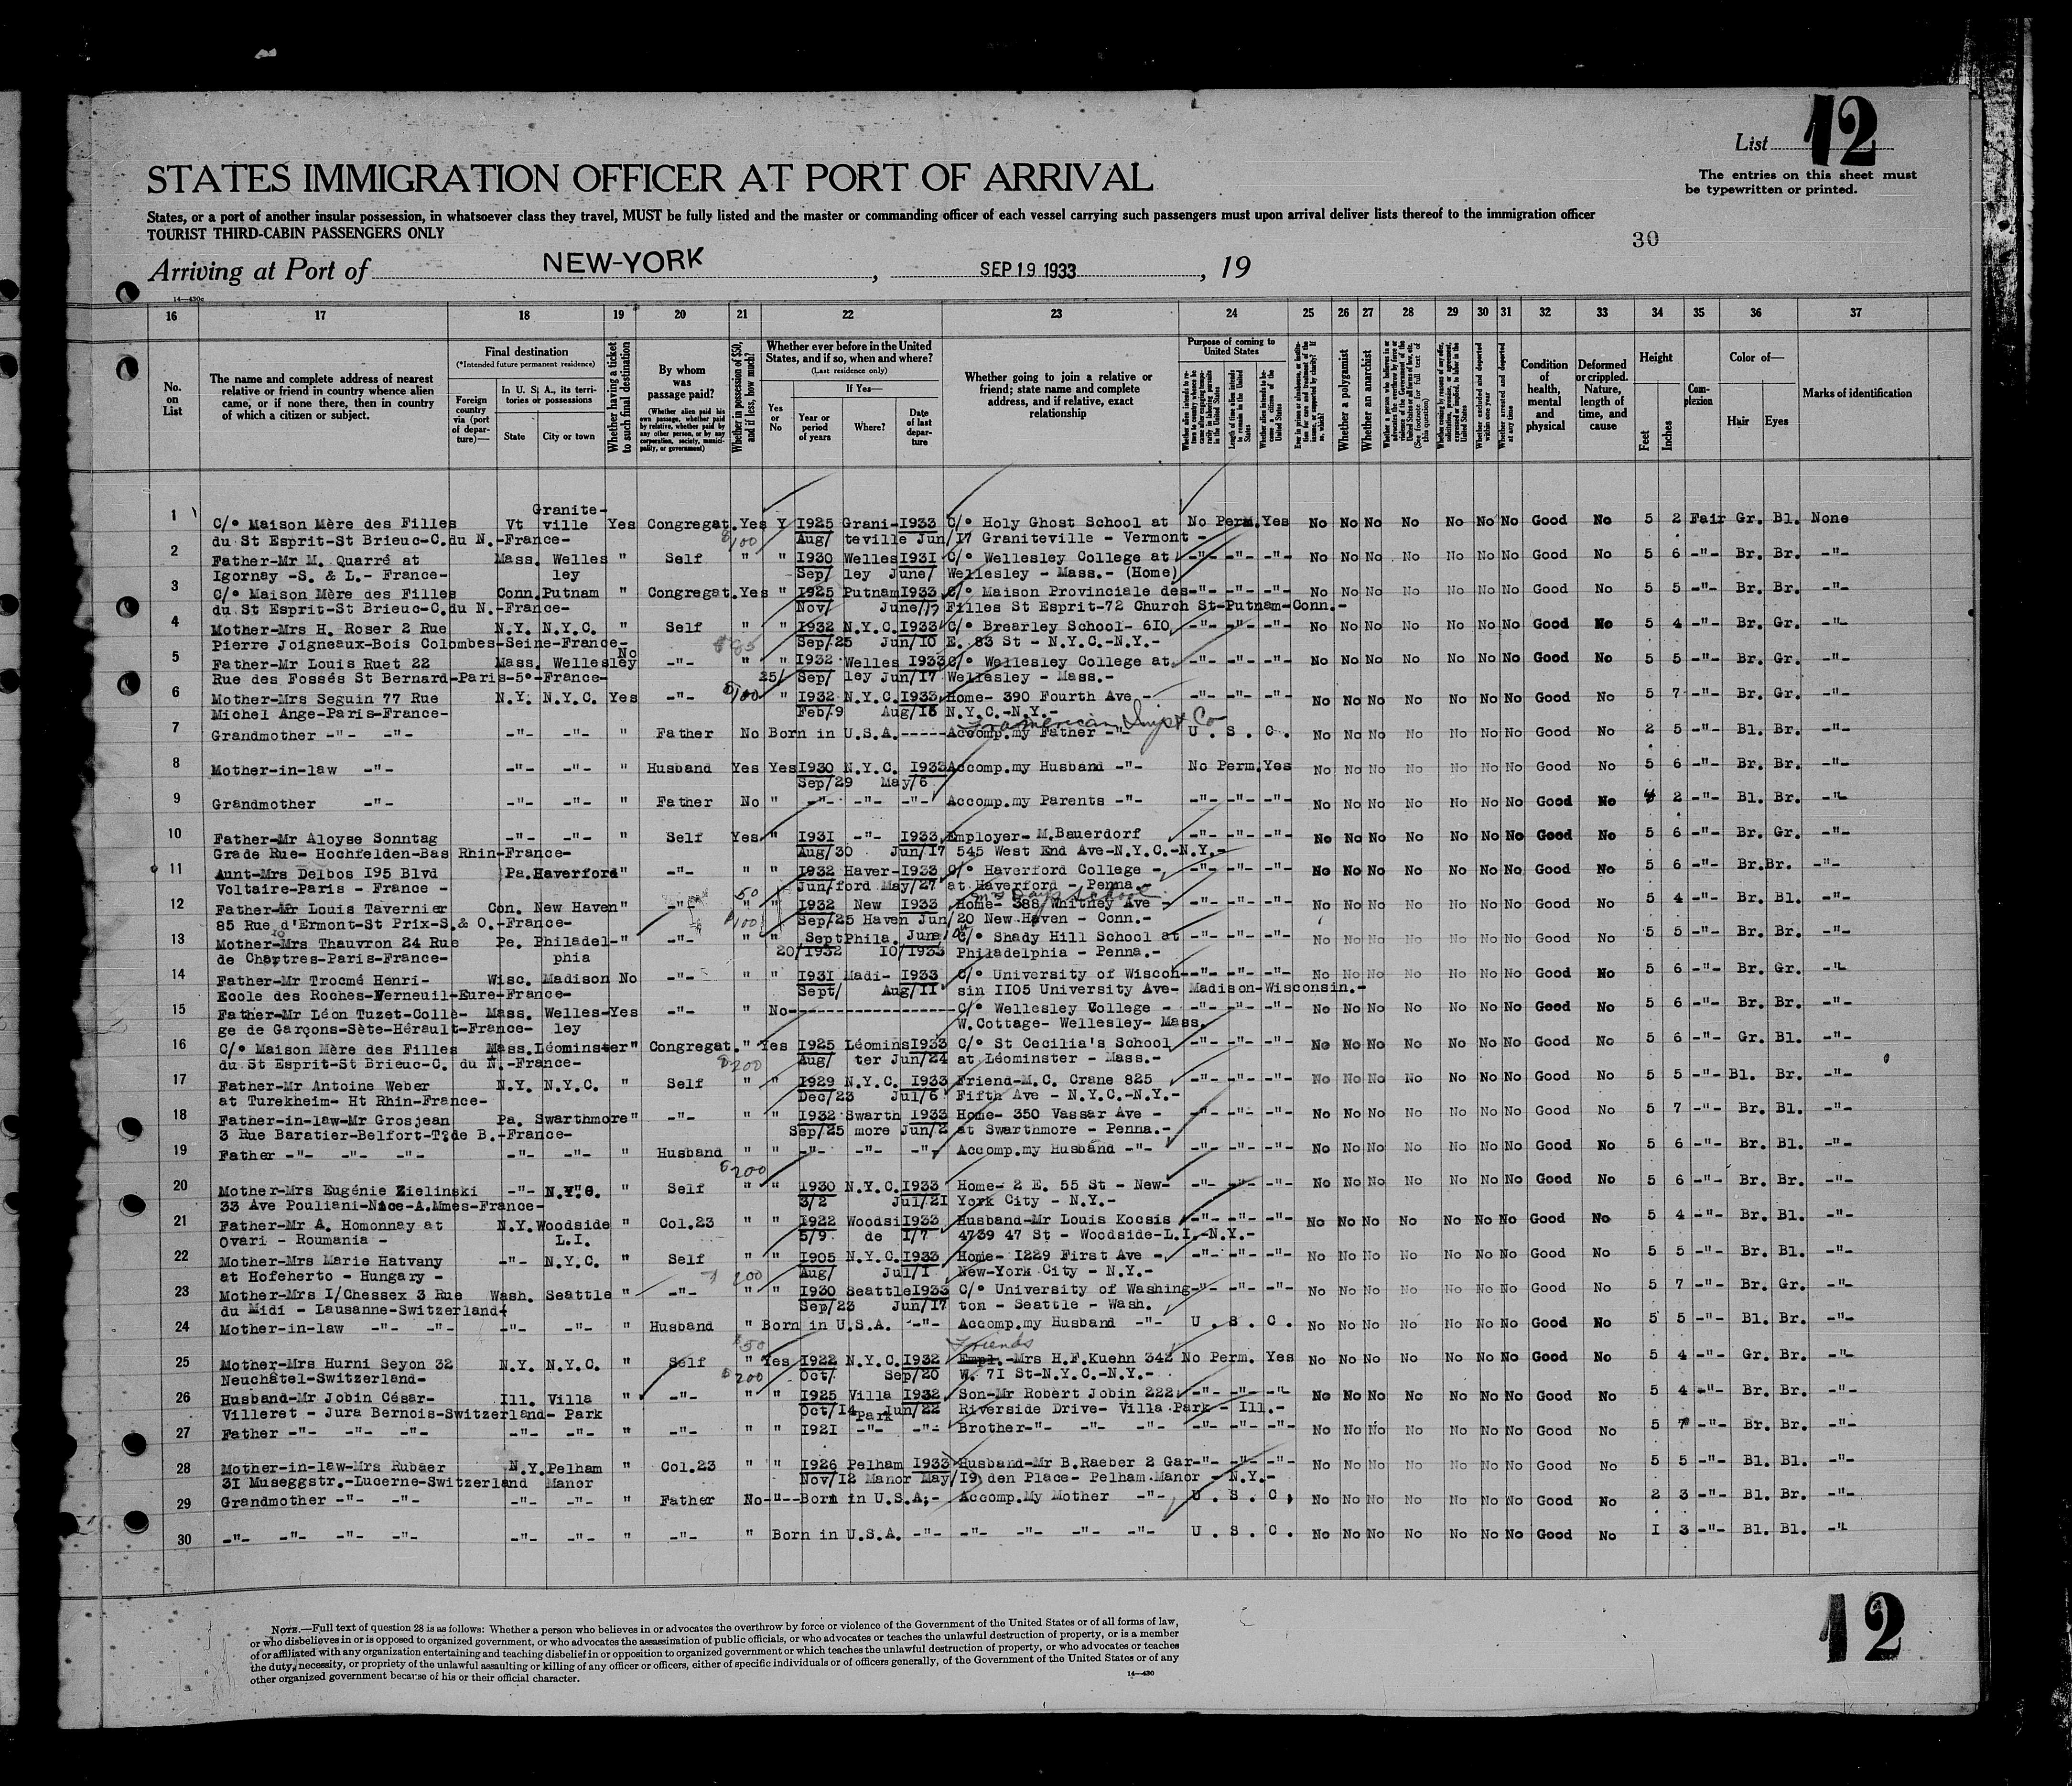 List 12
STATES IMMIGRATION OFFICER AT PORT OF ARRIVAL
The entries on this sheet must
be typewritten or printed.
States, or a port of another insular possession, in whatsoever class they travel, MUST be fully listed and the master or commanding officer of each vessel carrying such passengers must upon arrival deliver lists thereof to the immigration officer
TOURIST THIRD-CABIN PASSENGERS ONLY
30
Arriving at Port of NEW-YORK, SEP 19 1933, 19
16 17 18 19 20 21 22 23 24 25 26 27 28 29 30 31 32 33 34 35 36 37
No. on List
The name and complete address of nearest relative or friend in country whence alien came, or if none there, then in country of which a citizen or subject.
Final destination
(*Intended future permanent residence)
Foreign country via (port of departure)—
In U. S. A., its territories or possessions
State
City or town
Whether having a ticket to such final destination
By whom was passage paid?
(Whether alien paid his own passage, whether paid by relative, whether paid by any other person, or by any corporation, society, municipality, or government)
Whether in possession of $50, and if less, how much?
Whether ever before in the United States, and if so, when and where?
(Last residence only)
Yes or No
If Yes—
Year or period of years
Where?
Date of last departure
Whether going to join a relative or friend; state name and complete address, and if relative, exact relationship
Purpose of coming to United States
Whether a polygamist
Whether an anarchist
Condition of health, mental and physical
Deformed or crippled. Nature, length of time, and cause
Height
Feet
Inches
Complexion
Color of—
Hair
Eyes
Marks of identification
1 C/o Maison Mère des Filles Vt Granite-ville Yes Congregat. Yes Y 1925 Grani- 1933 C/o Holy Ghost School at No Perm. Yes No No No No No No No Good No 5 2 Fair Gr. Bl. None
du St Esprit-St Brieuc-C.du N.-France- $100 Aug/ teville Jun/17 Graniteville - Vermont -
2 Father-Mr M. Quarré at Mass. Welles " Self " 1930 Welles 1931 C/o Wellesley College at -"- -"- -"- No No No No No No No Good No 5 6 -"- Br. Br. -"-
Igornay -S. & L.- France- ley Sep/ ley June/ Wellesley - Mass.- (Home)
3 C/o Maison Mère des Filles Conn. Putnam " Congregat. Yes " 1925 Putnam 1933 C/o Maison Provinciale des -"- -"- -"- No No No No No No No Good No 5 5 -"- Br. Br. -"-
du St Esprit-St Brieuc-C.du N.-France- Nov/ June/17 Filles St Esprit-72 Church St-Putnam-Conn.-
4 Mother-Mrs H. Roser 2 Rue N.Y. N.Y.C. " Self " " 1932 N.Y.C. 1933 C/o Brearley School- 610 -"- -"- -"- No No No No No No No Good No 5 4 -"- Br. Gr. -"-
Pierre Joigneaux-Bois Colombes-Seine-France- $85 Sep/25 Jun/10 E. 83 St - N.Y.C.-N.Y.-
5 Father-Mr Louis Ruet 22 Mass. Wellesley No -"- " " 1932 Welles 1933 C/o Wellesley College at -"- -"- -"- No No No No No No No Good No 5 5 -"- Br. Gr. -"-
Rue des Fossés St Bernard-Paris-5°-France- 25/ Sep/ ley Jun/17 Wellesley - Mass.-
6 Mother-Mrs Seguin 77 Rue N.Y. N.Y.C. Yes -"- $100 " 1932 N.Y.C. 1933 Home- 390 Fourth Ave - -"- -"- -"- No No No No No No No Good No 5 7 -"- Br. Gr. -"-
Michel Ange-Paris-France- Feb/9 Aug/16 N.Y.C.-N.Y.-
7 Grandmother -"- -"- -"- -"- " Father No Born in U.S.A.-----Accomp.my Father -"- U. S. C. No No No No No No No Good No 2 5 -"- Bl. Br. -"-
8 Mother-in-law -"- -"- -"- " Husband Yes Yes 1930 N.Y.C. 1933 Accomp.my Husband -"- No Perm. Yes No No No No No No No Good No 5 6 -"- Br. Br. -"-
Sep/29 May/6
9 Grandmother -"- -"- -"- " Father No " -"- -"- -"- Accomp.my Parents -"- -"- -"- -"- No No No No No No No Good No 4 2 -"- Bl. Br. -"-
10 Father-Mr Aloyse Sonntag -"- -"- " Self Yes " 1931 -"- 1933 Employer- M.Bauerdorf -"- -"- -"- No No No No No No No Good No 5 6 -"- Br. Gr. -"-
Grade Rue- Hochfelden-Bas Rhin-France- Aug/30 Jun/17 545 West End Ave-N.Y.C.-N.Y.-
11 Aunt-Mrs Delbos 195 Blvd Pa. Haverford " -"- " " 1932 Haver- 1933 C/o Haverford College - -"- -"- -"- No No No No No No No Good No 5 6 -"- Br. Br. -"-
Voltaire-Paris - France - Jun/ ford May/27 at Haverford - Penna.-
12 Father-Mr Louis Tavernier Con. New Haven " -"- 50 " " 1932 New 1933 Home- 388 Whitney Ave - -"- -"- -"- No No No No No No No Good No 5 4 -"- Br. Bl. -"-
85 Rue d'Ermont-St Prix-S.& O.-France- $100 Sep/25 Haven Jun/20 New Haven - Conn.-
13 Mother-Mrs Thauvron 24 Rue Pe. Philadel- " -"- " " Sept Phila. June C/o Shady Hill School at -"- -"- -"- No No No No No No No Good No 5 5 -"- Br. Br. -"-
de Chartres-Paris-France- phia 20/1932 10/1933 Philadelphia - Penna.-
14 Father-Mr Trocmé Henri- Wisc. Madison No -"- " " 1931 Madi- 1933 C/o University of Wiscon- -"- -"- -"- No No No No No No No Good No 5 6 -"- Br. Gr. -"-
Ecole des Roches-Verneuil-Eure-France- Sept/ Aug/11 sin 1105 University Ave- Madison-Wisconsin.-
15 Father-Mr Léon Tuzet-Collè- Mass. Welles- Yes -"- " No------------------C/o Wellesley College - -"- -"- -"- No No No No No No No Good No 5 6 -"- Br. Br. -"-
ge de Garçons-Sète-Hérault-France- ley W.Cottage- Wellesley- Mass.
16 C/o Maison Mère des Filles Mass. Léominster " Congregat. " Yes 1925 Léomins 1933 C/o St Cecilia's School -"- -"- -"- No No No No No No No Good No 5 6 -"- Gr. Bl. -"-
du St Esprit-St Brieuc-C. du N.-France- $200 Aug/ ter Jun/24 at Léominster - Mass.-
17 Father-Mr Antoine Weber N.Y. N.Y.C. " Self " " 1929 N.Y.C. 1933 Friend-M.C. Crane 825 -"- -"- -"- No No No No No No No Good No 5 5 -"- Bl. Br. -"-
at Turekheim- Ht Rhin-France- Dec/23 Jul/6 Fifth Ave - N.Y.C.-N.Y.-
18 Father-in-law-Mr Grosjean Pa. Swarthmore " -"- " " 1932 Swarth 1933 Home- 350 Vassar Ave - -"- -"- -"- No No No No No No No Good No 5 7 -"- Br. Bl. -"-
3 Rue Baratier-Belfort-T?de B.-France- Sep/25 more Jun/2 at Swarthmore - Penna.-
19 Father -"- -"- -"- -"- -"- " Husband " " -"- -"- -"- Accomp.my Husband -"- -"- -"- -"- No No No No No No No Good No 5 6 -"- Br. Bl. -"-
$200
20 Mother-Mrs Eugénie Zielinski -"- N.Y.C. " Self " " 1930 N.Y.C. 1933 Home- 2 E. 55 St - New- -"- -"- -"- No No No No No No No Good No 5 6 -"- Br. Br. -"-
33 Ave Pouliani-Nice-A.Mmes-France- 3/2 Jul/21 York City - N.Y.-
21 Father-Mr A. Homonnay at N.Y. Woodside " Col.23 " " 1922 Woodsi 1933 Husband-Mr Louis Kocsis -"- -"- -"- No No No No No No No Good No 5 4 -"- Br. Bl. -"-
Ovari - Roumania - L.I. 5/9 de 1/7 4739 47 St - Woodside-L.I.-N.Y.-
22 Mother-Mrs Marie Hatvany -"- N.Y.C. " Self " " 1905 N.Y.C. 1933 Home- 1229 First Ave - -"- -"- -"- No No No No No No No Good No 5 5 -"- Br. Bl. -"-
at Hofeherto - Hungary - 200 Aug/ Jul/1 New-York City - N.Y.-
23 Mother-Mrs I/Chessex 3 Rue Wash. Seattle " -"- " " 1930 Seattle 1933 C/o University of Washing- -"- -"- -"- No No No No No No No Good No 5 7 -"- Br. Gr. -"-
du Midi - Lausanne-Switzerland- Sep/23 Jun/17 ton - Seattle - Wash.
24 Mother-in-law -"- -"- -"- -"- " Husband " Born in U.S.A. -"- Accomp.my Husband -"- U. S. C. No No No No No No No Good No 5 5 -"- Bl. Br. -"-
$50 Friends
25 Mother-Mrs Hurni Seyon 32 N.Y. N.Y.C. " Self " Yes 1922 N.Y.C. 1932 Empl.-Mrs H.F.Kuehn 342 No Perm. Yes No No No No No No No Good No 5 4 -"- Gr. Br. -"-
Neuchâtel-Switzerland- $200 Oct/ Sep/20 W. 71 St-N.Y.C.-N.Y.-
26 Husband-Mr Jobin César- Ill. Villa " -"- " " 1925 Villa 1932 Son-Mr Robert Jobin 222 -"- -"- -"- No No No No No No No Good No 5 4 -"- Br. Br. -"-
Villeret - Jura Bernois-Switzerland- Park Oct/14 Park Jun/22 Riverside Drive- Villa Park - Ill.-
27 Father -"- -"- -"- -"- -"- " -"- " " 1921 -"- -"- Brother-"- -"- -"- -"- -"- -"- No No No No No No No Good No 5 7 -"- Br. Br. -"-
28 Mother-in-law-Mrs Rubaer N.Y. Pelham " Col.23 " " 1926 Pelham 1933 Husband-Mr B.Raeber 2 Gar- -"- -"- -"- No No No No No No No Good No 5 5 -"- Bl. Bl. -"-
31 Museggstr.-Lucerne-Switzerland Manor Nov/12 Manor May/19 den Place- Pelham Manor - N.Y.-
29 Grandmother -"- -"- -"- -"- " Father No-"--Born in U.S.A.- Accomp.My Mother -"- U. S. C. No No No No No No No Good No 2 3 -"- Bl. Br. -"-
30 -"- -"- -"- -"- -"- -"- " -"- " Born in U.S.A. -"- -"- -"- -"- -"- U. S. C. No No No No No No No Good No 1 3 -"- Bl. Bl. -"-
NOTE.—Full text of question 28 is as follows: Whether a person who believes in or advocates the overthrow by force or violence of the Government of the United States or of all forms of law,
or who disbelieves in or is opposed to organized government, or who advocates the assassination of public officials, or who advocates or teaches the unlawful destruction of property, or is a member
of or affiliated with any organization entertaining and teaching disbelief in or opposition to organized government or which teaches the unlawful destruction of property, or who advocates or teaches
the duty, necessity, or propriety of the unlawful assaulting or killing of any officer or officers, either of specific individuals or of officers generally, of the Government of the United States or of any
other organized government because of his or their official character.
14—430
12